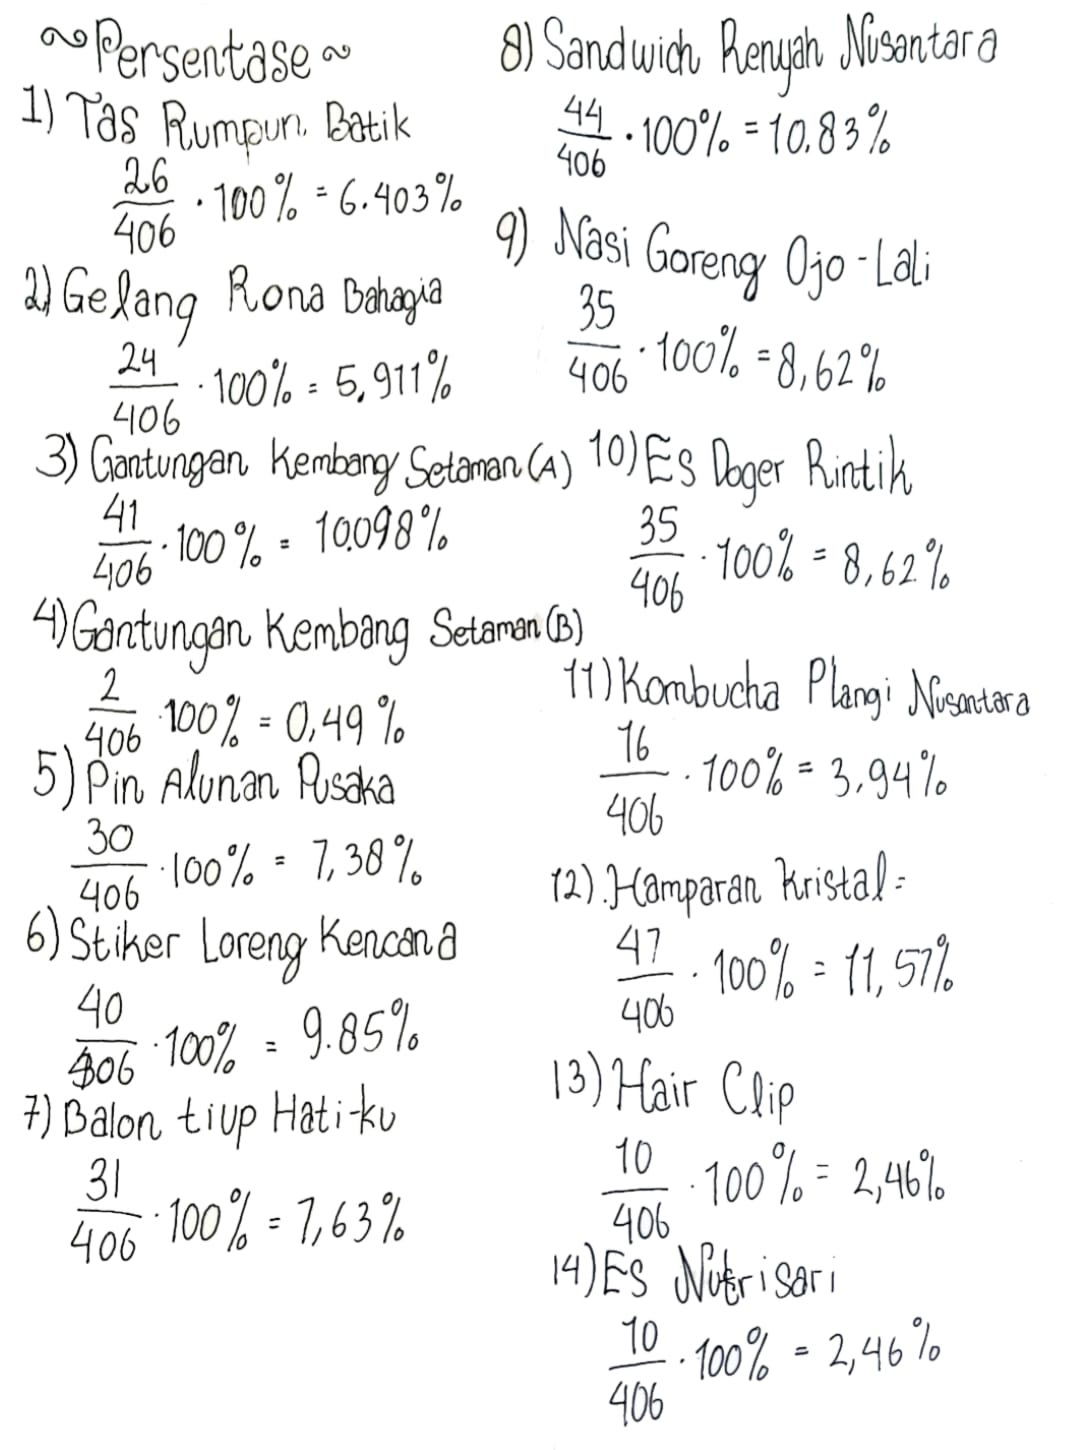 ~Persentase~
1) Tas Rumpun Batik
26/406 · 100% = 6.403%
2) Gelang Rona Bahagia
24/406 · 100% = 5,911%
3) Gantungan Kembang Setaman (A)
41/406 · 100% = 10.098%
4) Gantungan Kembang Setaman (B)
2/406 · 100% = 0,49%
5) Pin Alunan Pusaka
30/406 · 100% = 7,38%
6) Stiker Loreng Kencana
40/406 · 100% = 9.85%
7) Balon tiup Hati-ku
31/406 · 100% = 7,63%
8) Sandwich Renyah Nusantara
44/406 · 100% = 10,83%
9) Nasi Goreng Ojo-Lali
35/406 · 100% = 8,62%
10) Es Doger Rintik
35/406 · 100% = 8,62%
11) Kombucha Plangi Nusantara
16/406 · 100% = 3,94%
12) Hamparan Kristal =
47/406 · 100% = 11,57%
13) Hair Clip
10/406 · 100% = 2,46%
14) Es Nutrisari
10/406 · 100% = 2,46%